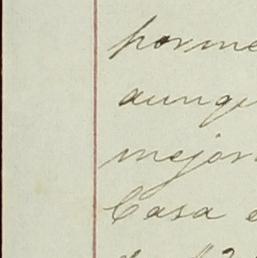 porme
aunqu
mejor
Casa e